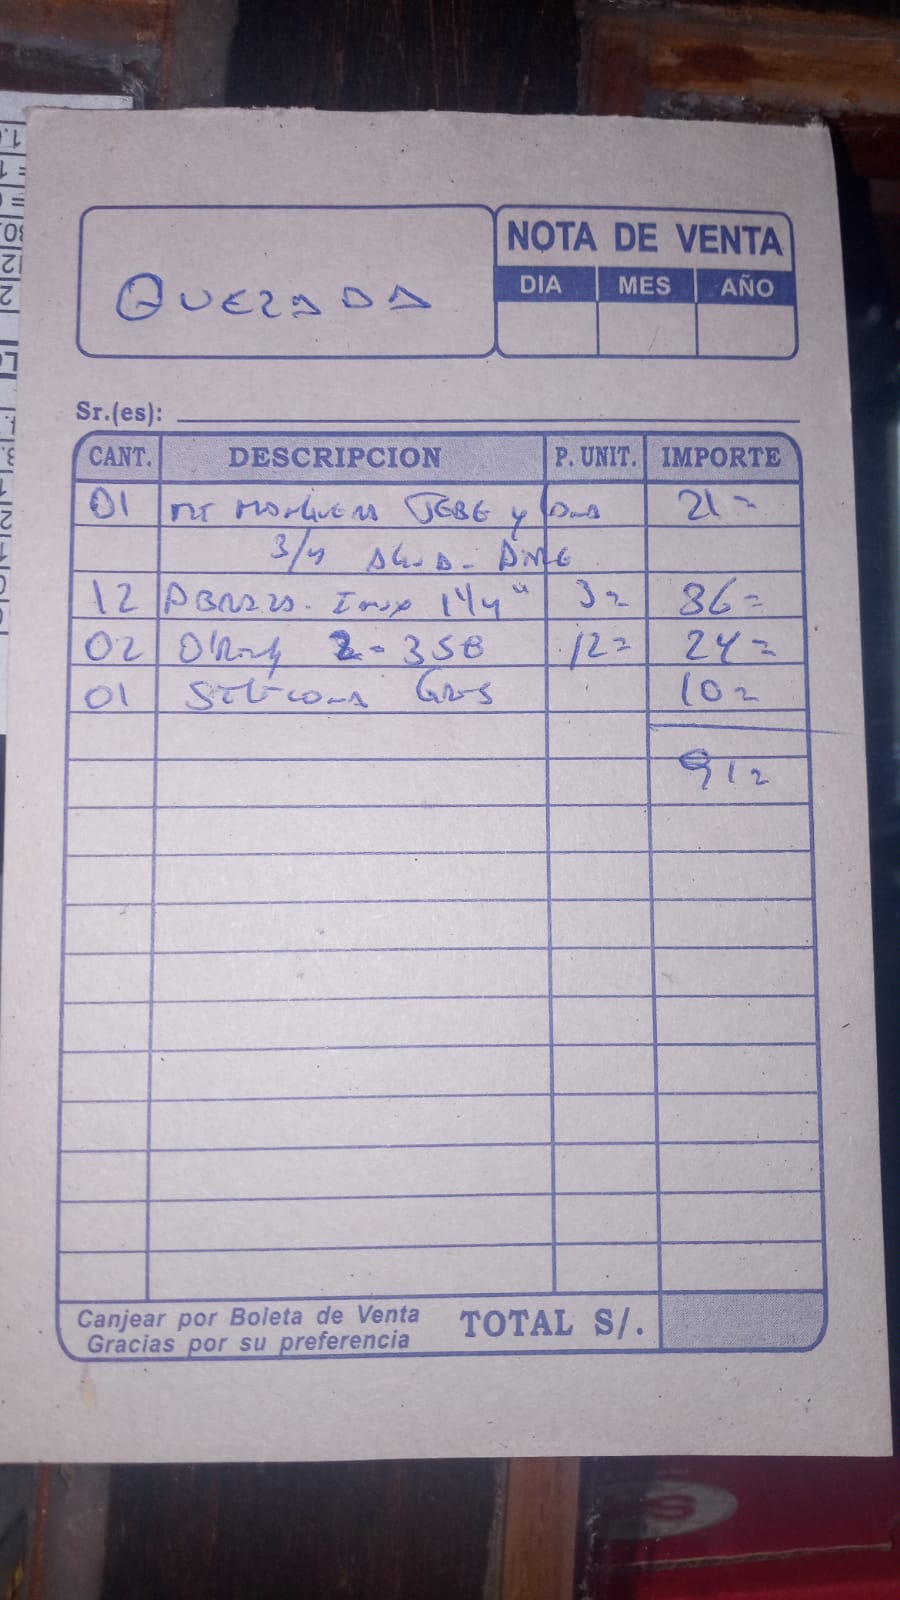 QUEZADA
NOTA DE VENTA
DIA MES AÑO
Sr.(es):
CANT. DESCRIPCION P. UNIT. IMPORTE
01 MT MANGUERA JEBE y LONA 21=
3/4 AGUA - AIRE
12 ABRAZA. Inox 1 1/4" 3= 36=
02 O'Ring 2-358 12= 24=
01 SILICONA GRIS 10=
91=
Canjear por Boleta de Venta
Gracias por su preferencia
TOTAL S/.